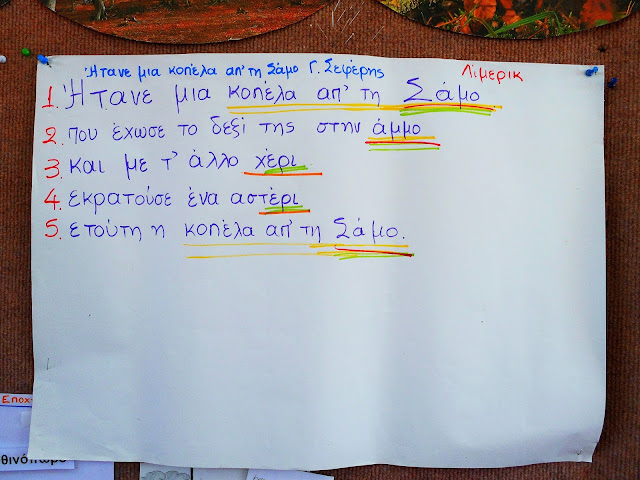 Ήτανε μια κοπέλα απ' τη Σάμο Γ. Σεφέρης
Λίμερικ
1. Ήτανε μια κοπέλα απ' τη Σάμο
2. που έχωσε το δεξί της στην άμμο
3. και με τ' άλλο χέρι
4. εκρατούσε ένα αστέρι
5. ετούτη η κοπέλα απ' τη Σάμο.
Εποχ
θινόπωρο